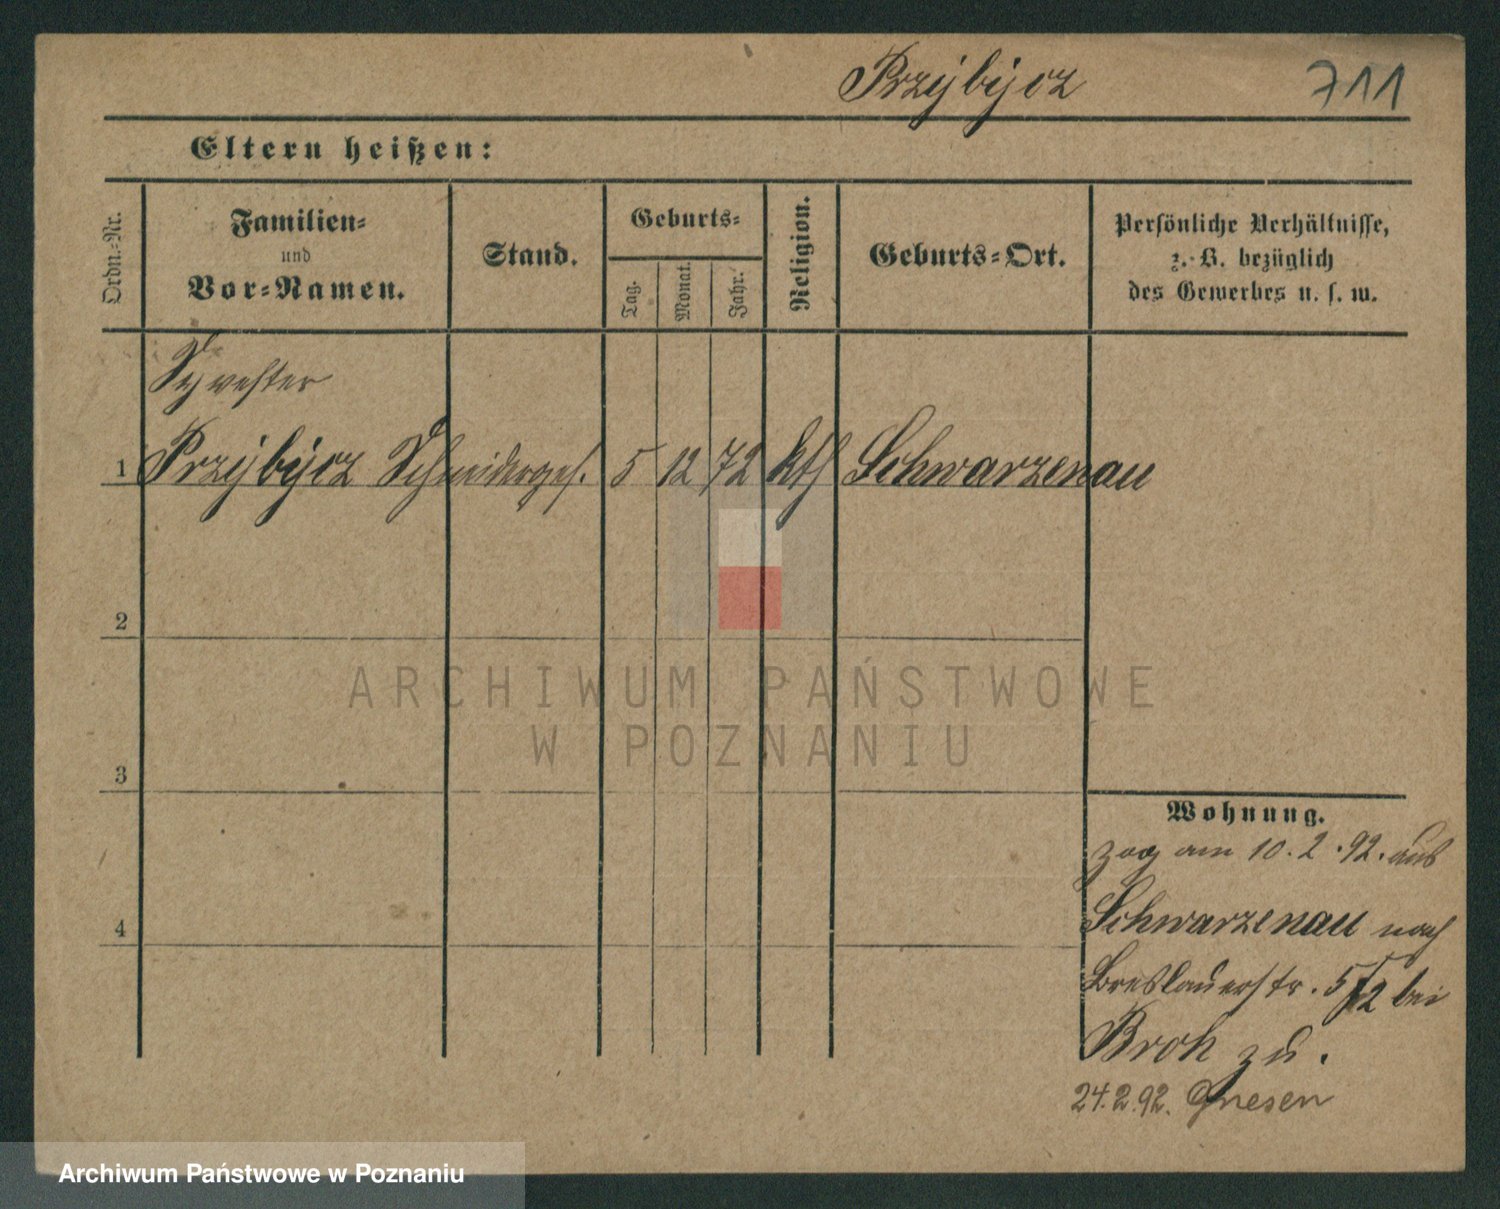 Przybycz 711
Eltern heißen:
Ordn.-Nr.
Familien-
und
Vor-Namen.
Stand.
Geburts-
Tag.
Monat.
Jahr.
Religion.
Geburts-Ort.
Persönliche Verhältnisse,
z. B. bezüglich
des Gewerbes u. s. w.
Sylvester
1 Przybycz Schneiderges. 5 12 72 kth Schwarzenau
2
3
4
Wohnung.
zog am 10.2.92. aus
Schwarzenau nach
Breslauerstr. 5/2 bei
Broh zu.
24.2.92. Gnesen
ARCHIWUM PAŃSTWOWE
W POZNANIU
Archiwum Państwowe w Poznaniu